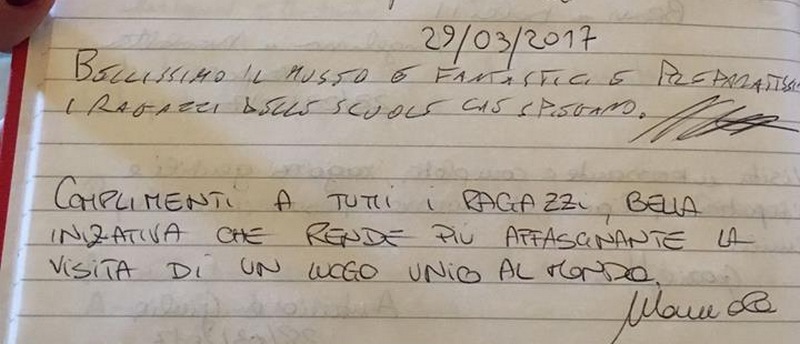 29/03/2017
BELLISSIMO IL MUSEO E FANTASTICI E PREPARATISSI
I RAGAZZI DELLE SCUOLE CHE SPIEGANO.
COMPLIMENTI A TUTTI I RAGAZZI, BELLA
INIZATIVA CHE RENDE PIÙ AFFASCINANTE LA
VISITA DI UN LUOGO UNICO AL MONDO.